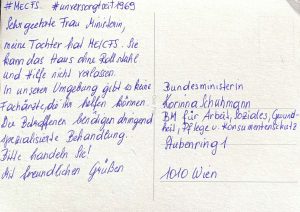 #MECFS. #unversorgtseit1969
Sehr geehrte Frau Ministerin,
meine Tochter hat ME/CFS. Sie
kann das Haus ohne Rollstuhl
und Hilfe nicht verlassen.
In unserer Umgebung gibt es keine
Fachärzte, die ihr helfen können.
Die Betroffenen benötigen dringend
spezialisierte Behandlung.
Bitte handeln Sie!
Mit freundlichen Grüßen
Bundesministerin
Korinna Schuhmann
BM für Arbeit, Soziales, Gesund-
heit, Pflege u. Konsumentenschutz
Stubenring 1
1010 Wien